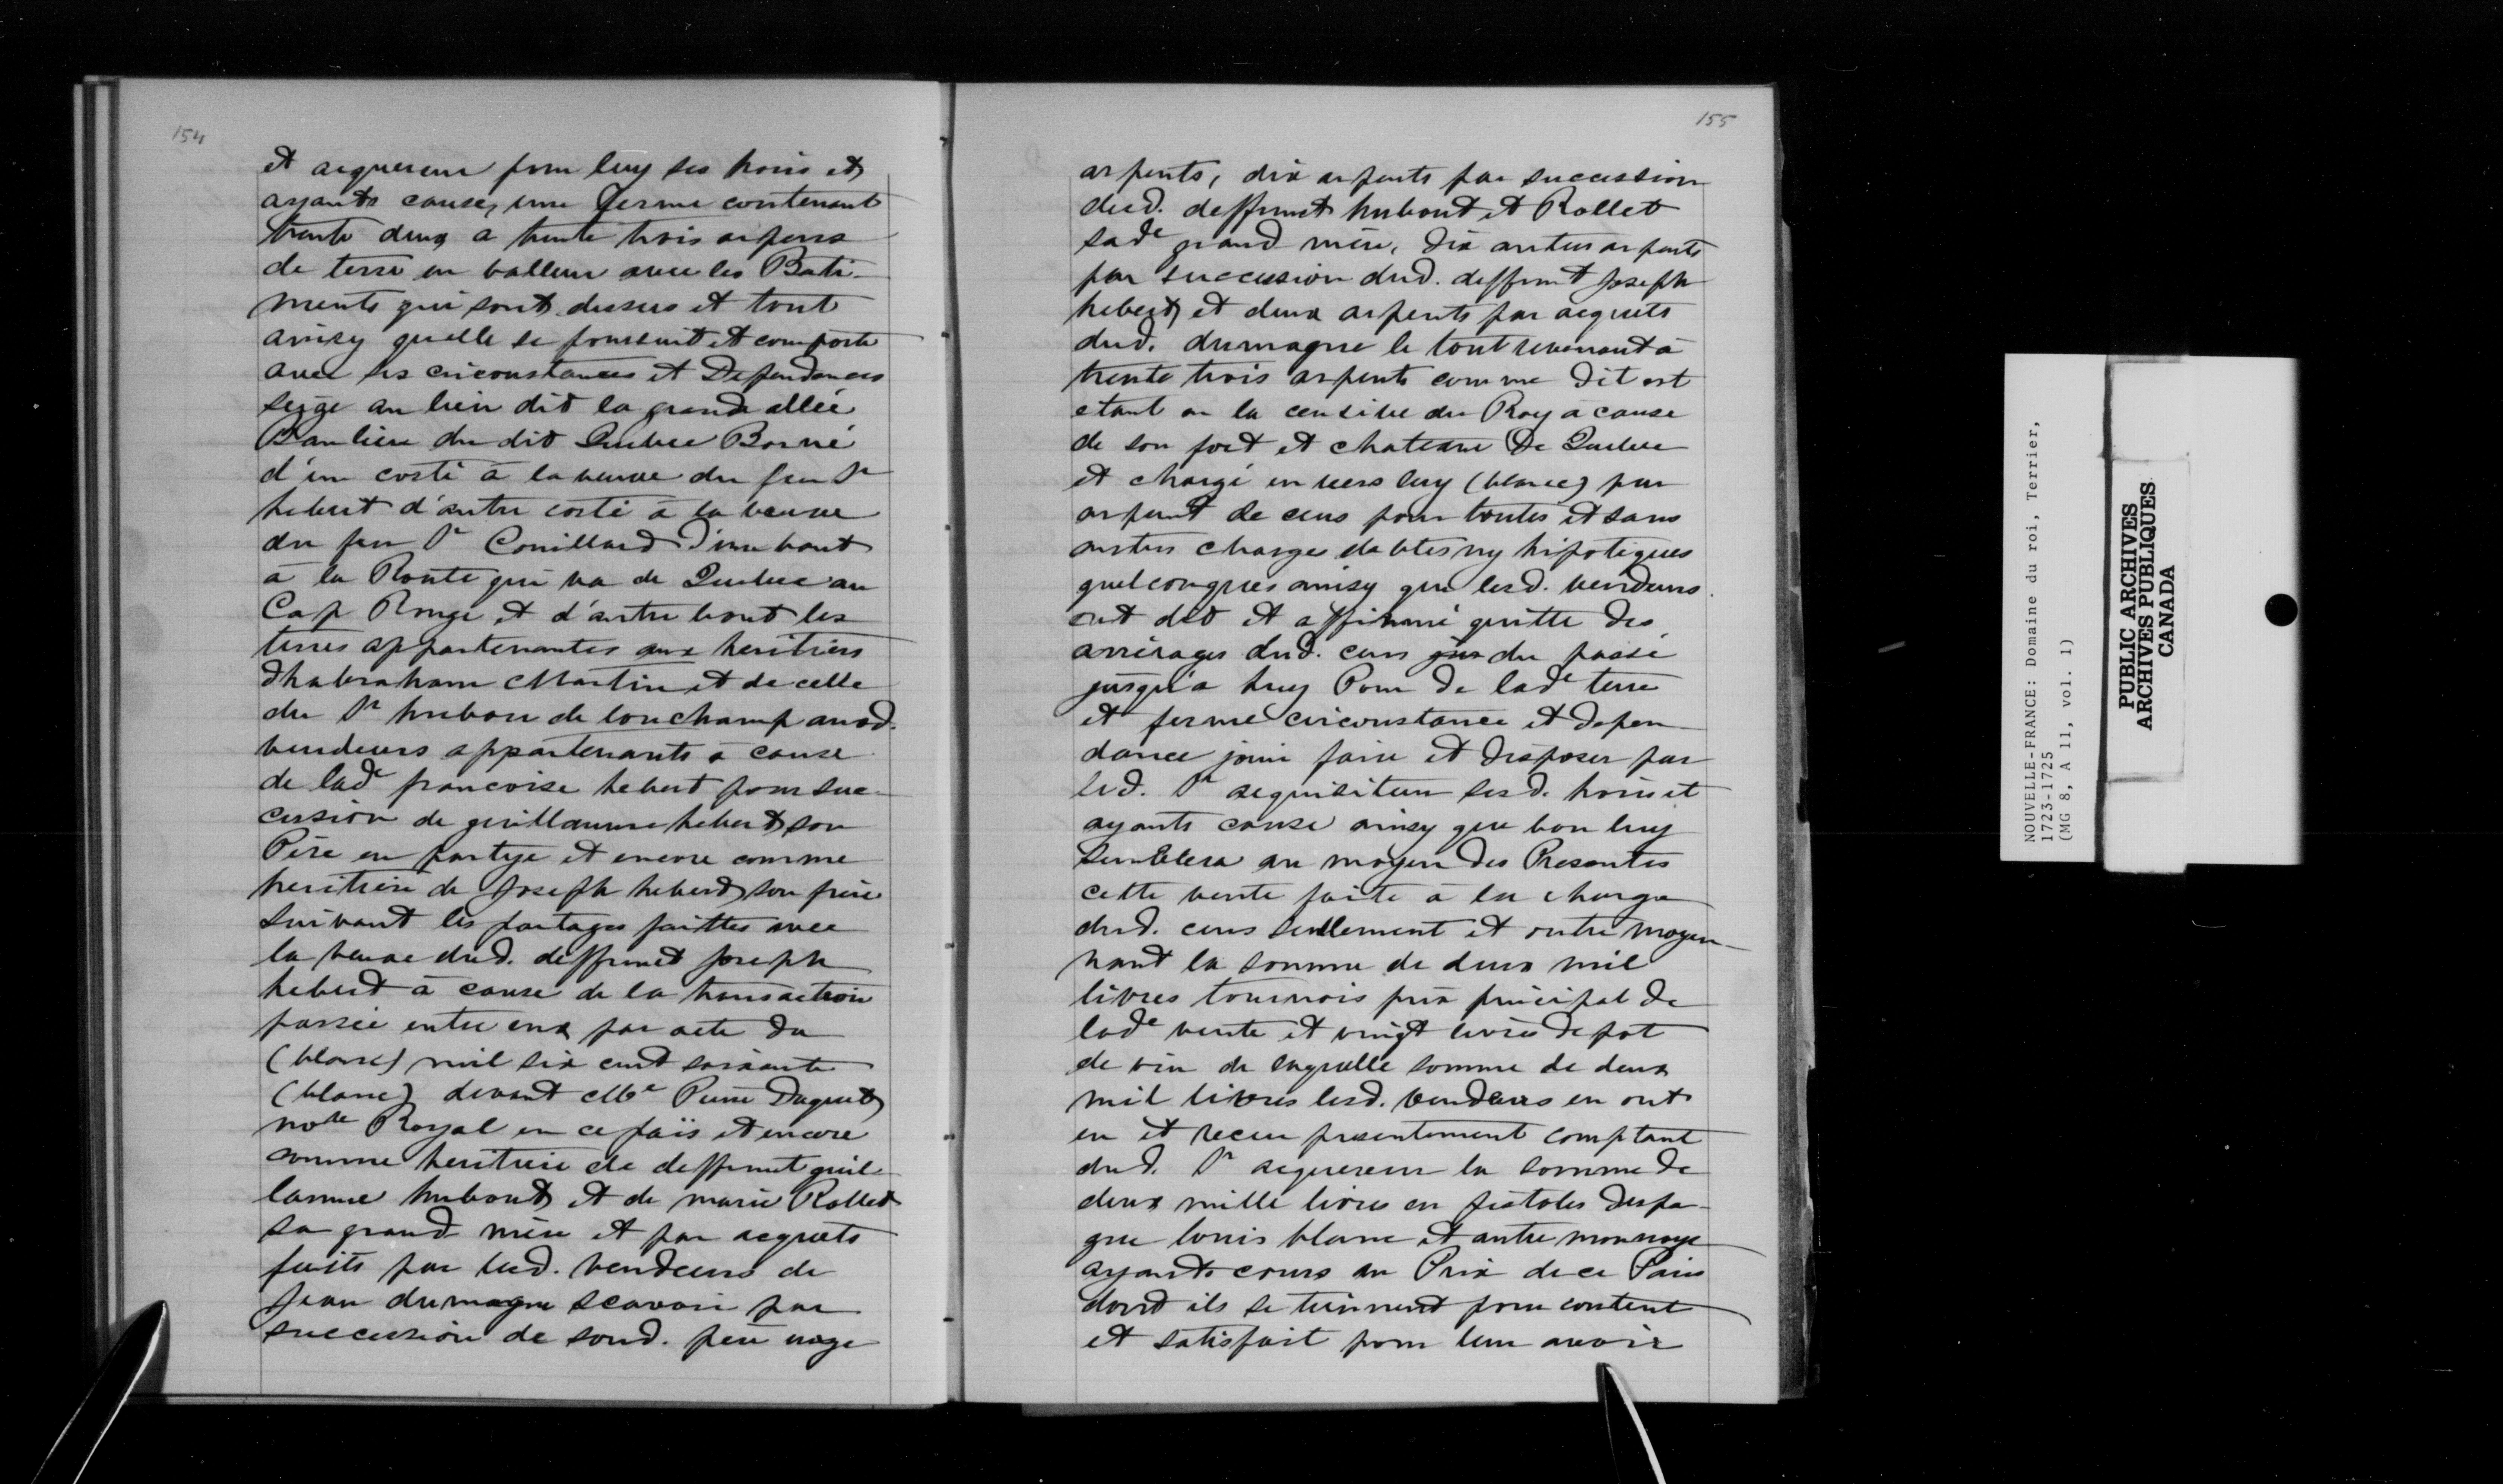 154
et acquereur pour luy ses hoirs et
ayants cause, une ferme contenant
trente deux a trente trois arpens
de terre en valleur avec les Bati-
ments qui sont dessus et tout
ainsy quelle se poursuit et comporte
avec ses circonstances et Dependances
seize au lieu dit la grande allée
Banlieue du dit Quebec Borné
d'un costé à la veuve du feu Sr
hebert d'autre costé à la veuve
du feu Sr Couillard d'un bout
à la Route qui va de Quebec au
Cap Rouge et d'autre bout les
terres appartenantes aux heritiers
dhabraham Martin et de celle
du Sr hubou de lonchamp ausd.
vendeurs appartenants à cause
de lade francoise hebert pour suc-
cession de guillaume hebert son
Père en partye et encore comme
heritiere de Joseph hebert son frère
suivant les partages faittes avec
la veuve dud. deffunct Joseph
hebert à cause de la transaction
passée entre eux par acte du
(blanc) mil six cent soixante
(blanc) devant Me Pierre Duquet
nore Royal en ce païs et encore
comme heritiere de deffunct guil-
laume hubout et de marie Rollet
sa grand mère et par acquets
faits par lesd. vendeurs de
Jean dumagne scavoir par
succession de sond. père unze
155
arpents, dix arpents par succession
dud. deffunct hubout et Rollet
sade grand mère, dix autres arpents
par succession dud. deffunct Joseph
hebert et deux arpents par acquets
dud. dumagne le tout revenant à
trente trois arpents comme dit est
etant en la censive du Roy à cause
de son fort et chateau De Quebec
et chargé envers luy (blanc) par
arpent de cens pour toutes et sans
autres charges debtes ny hipoteques
quelconques ainsy que lesd. vendeurs
ont dit et affirmé quitte des
arrérages dud. cens jus du passé
jusqu'a huy Pour de lade terre
et ferme circonstance et depen-
dance jouir faire et disposer par
led. Sr acquisiteur sesd. hoirs et
ayants cause ainsy que bon luy
semblera au moyen des Presentes
cette vente faite à la charge
dud. cens seullement et outre moyen-
nant la somme de deux mil
livres tournois prix principal de
lade vente et vingt livres de pot
de vin de laquelle somme de deux
mil livres lesd. vendeurs en ont
eu et receu presentement comptant
dud. Sr acquereur la somme de
deux mille livres en pistoles despa-
gne louis blanc et autre monnoye
ayants cours au Prix de ce Pais
dont ils se tiennent pour content
et satisfait pour leur avoir
NOUVELLE-FRANCE: Domaine du roi, Terrier,
1723-1725
(MG 8, A 11, vol. 1)
PUBLIC ARCHIVES
ARCHIVES PUBLIQUES
CANADA